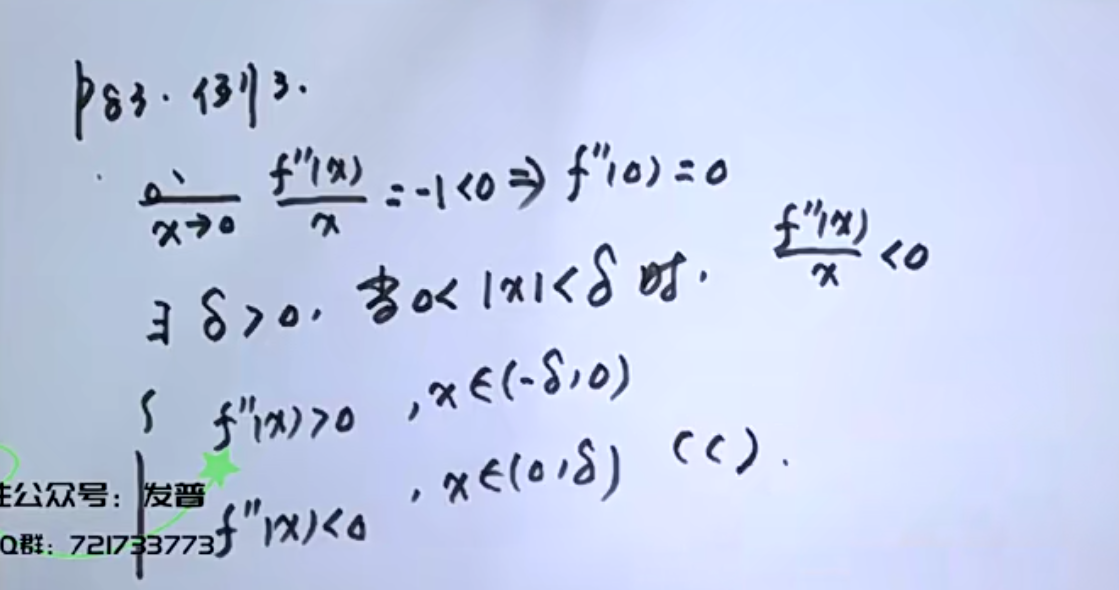 P83. 例3.
lim x→0 f''(x)/x = -1 < 0 ⇒ f''(0) = 0
∃ δ > 0. 当 0 < |x| < δ 时. f''(x)/x < 0
{ f''(x) > 0 , x ∈ (-δ, 0)
f''(x) < 0 , x ∈ (0, δ) (C).
公众号：发普
Q群：721733773